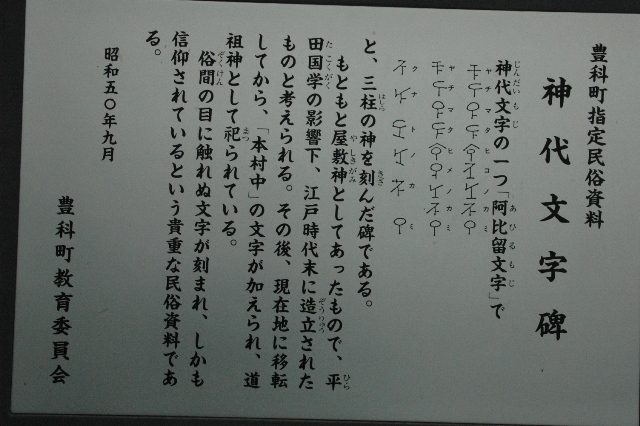 豊科町指定民俗資料
神代文字碑
神代文字の一つ「阿比留文字」で
ヤチマタヒコノカミ
ヤチマタヒメノカミ
クナトノカミ
と、三柱の神を刻んだ碑である。
もともと屋敷神としてあったもので、平
田国学の影響下、江戸時代末に造立された
ものと考えられる。その後、現在地に移転
してから、「本村中」の文字が加えられ、道
祖神として祀られている。
俗間の目に触れぬ文字が刻まれ、しかも
信仰されているという貴重な民俗資料であ
る。
昭和五〇年九月
豊科町教育委員会